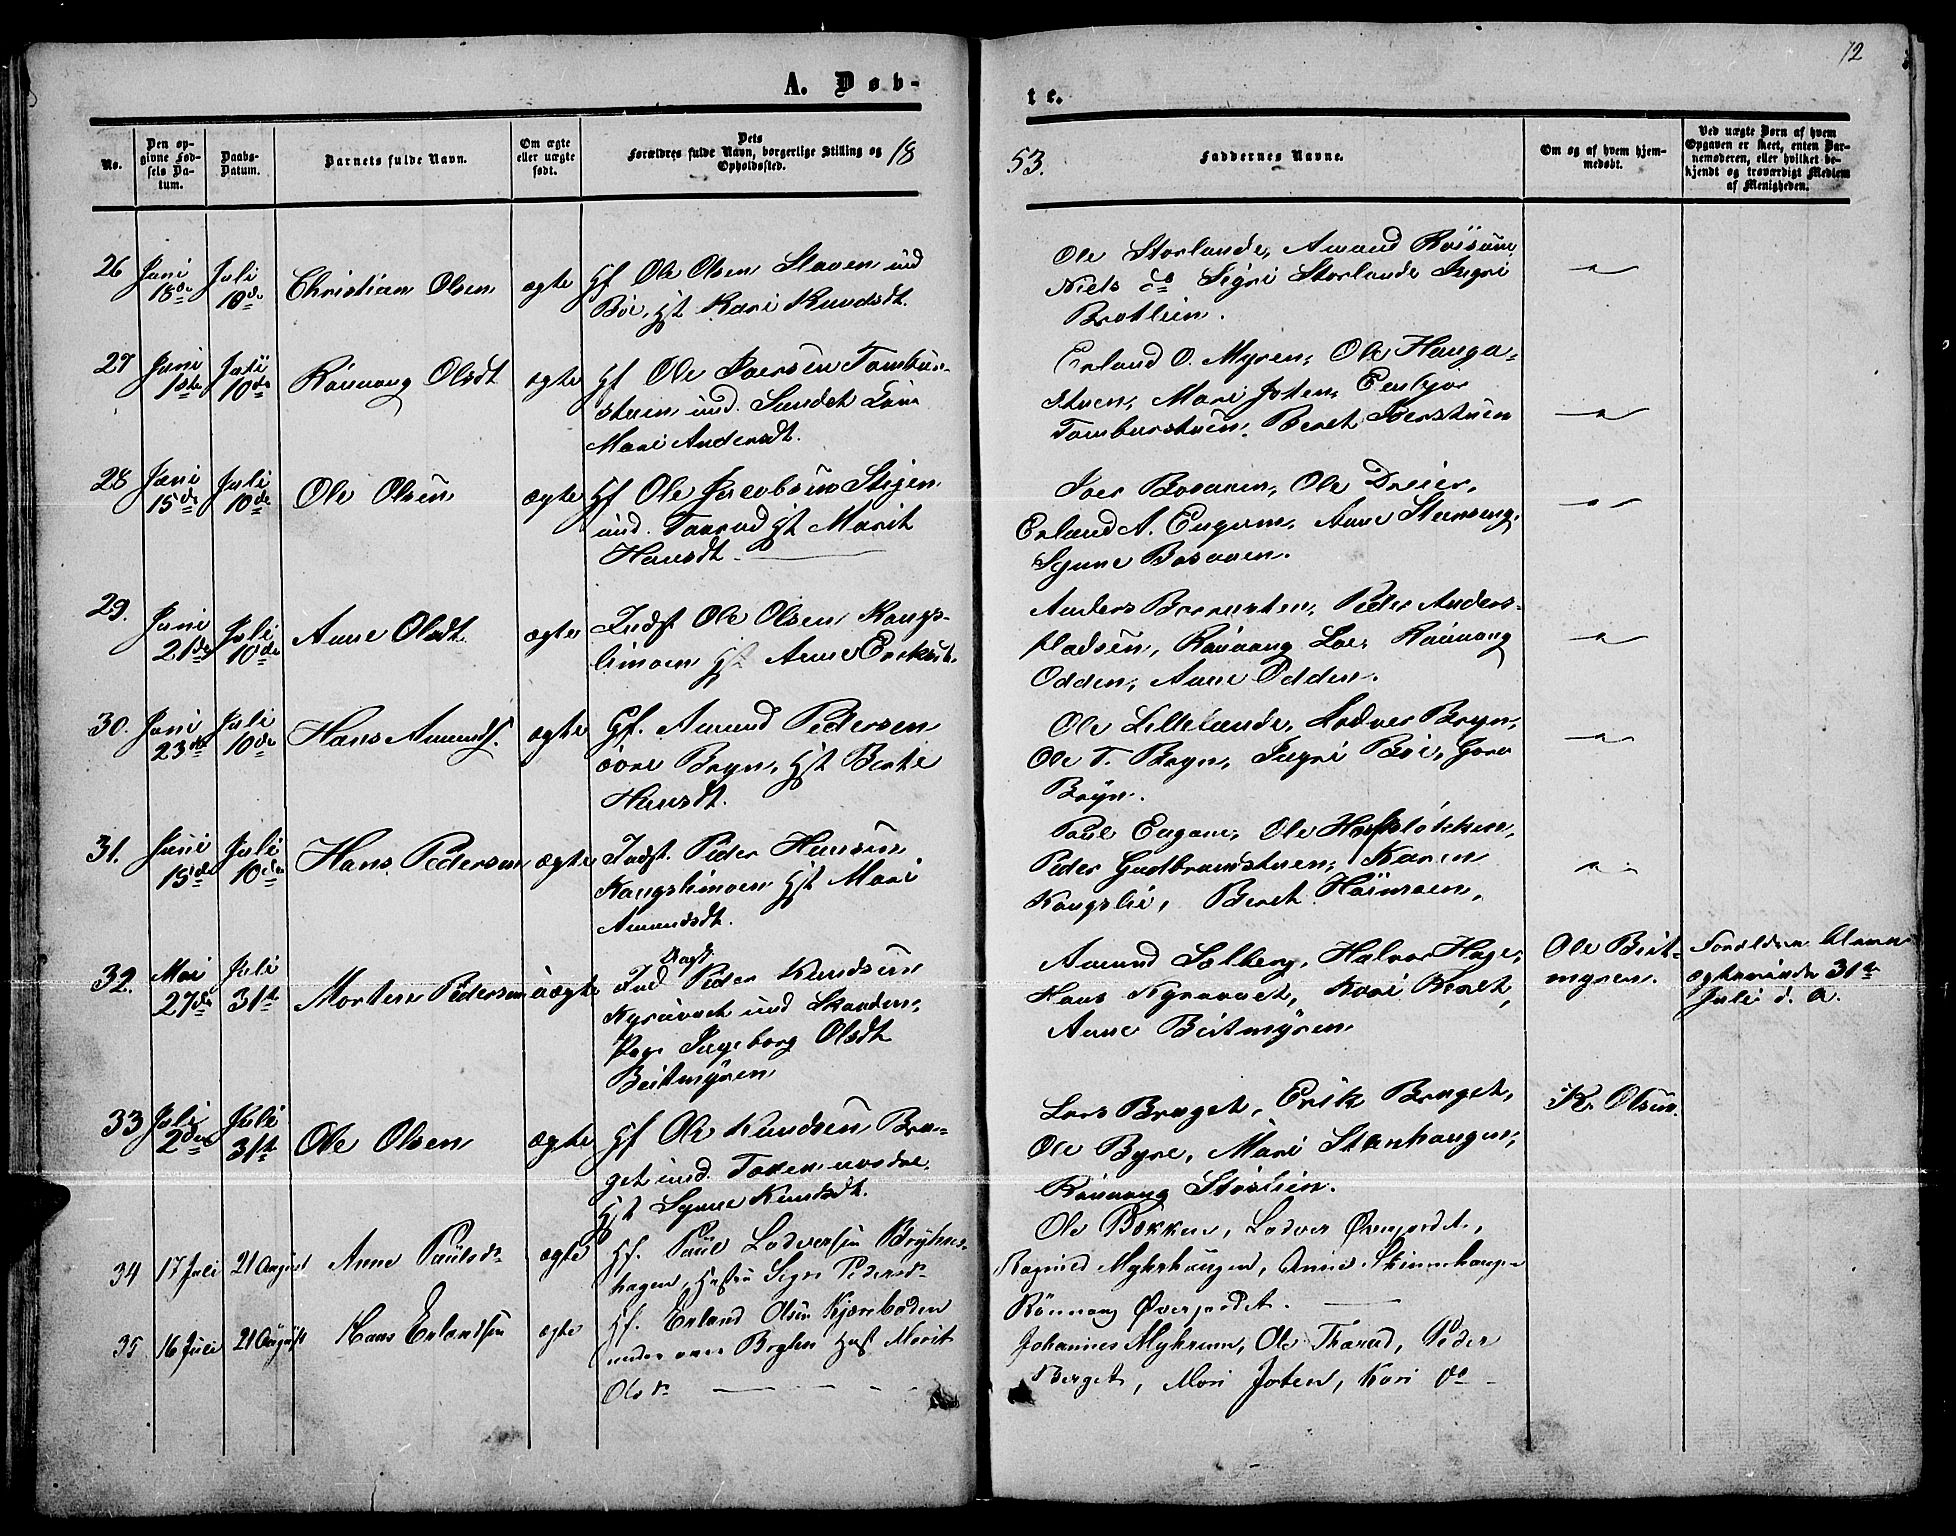 12
A. Døb-
te.
No.
Den op-
givne Fød-
sels Da-
tum.
Daabs-
Datum.
Barnets fulde Navn.
Om ægte
eller uægte
født.
Dets
Forældres fulde Navn, borgerlige Stilling og
Opholdssted.
18
53.
Faddernes Navne.
Om og af hvem hjem-
medøbt.
Ved uægte Børn af hvem
Opgaven er skeet, enten Bar-
nemoderen, eller hvilket be-
kjendt og troværdigt Medlem
af Menigheden.
26 Juni 18de Juli 10de Christian Olsen ægte
Gf Ole Olsen Slaven und
Bøe, Hst Kari Knudsdt.
Ole Storlande, Amund
Niels do Sigri Storlande Ingri
Brotlien.
27 Juni 1ste Juli 10de Rønnaug Olsdt ægte
Gf Ole Iversen Tambur-
stuen und. Sundet
Mari Andersdt.
Erland O. Myren, Ole Hauga-
stuen, Mari Joten,
Tamburstuen, Beret Iverstuen
28 Juni 15de Juli 10de Ole Olsen ægte
Gf Ole Jacobsen Stigen
und. Taarud Hst Marit
Hansdt.
Iver Bosaaen, Ole Dreier,
Erland A. Engum, Anne
Synne Bosaaen.
29. Juni 21de Juli 10de Anne Olsdt. ægte
Indst Ole Olsen Kongs-
limoen Hst Anne Eriksdt.
Anders Peder Anders-
pladsen, Rønnaug Loe, Rønnaug
Odden, Anne Odden.
30. Juni 23de Juli 10de Hans Amunds. ægte
Gf. Amund Pedersen
øvre Bryn, Hst Berte
Hansdt.
Ole Lillelande, Lodver Bryn,
Ole T. Bryn, Ingri Bøe, Goro
Bryn.
31. Juni 15de Juli 10de Hans Pedersen ægte
Indst. Peder Hansen
Kongslimoen Hst Mari
Amundsdt.
Paul Engom, Ole
Peder Gudbrandstuen, Karen
Kongslie, Beret Høimoen,
32. Mai 27de Juli 31te Morten Pedersen uægte
Peder Knudsen
und Skarden,
Pige Ingeborg Olsdt
Beitmyren
Amund Solberg, Halvor Hage,
Hans Kari Beret,
Anne Beitmyren
Ole Beit-
myren.
Forældrene bleve
ægteviede 31te
Juli d. A.
33 Juli 2den Juli 31te Ole Olsen ægte
Gf Ole Knudsen Bra-
get und.
Hst Synne Knudsdt.
Lars Braget, Erik Braget,
Ole Byre, Mari Stenhaugen,
Rønnaug Støslien.
K. Olsen.
34 17 Juli 21 August Anne Paulsdr ægte
Gf. Paul Lodversen Bryhns-
hagen, Hustru Signe Pedersdr
Ole Bækken, Lodver Øvrejordet,
Ragnild Myhrhaugen, Anne Skinnehaugen
Rønnaug Øverjordet.
35 16 Juli 21 August Hans Erlandsen ægte
Gf. Erland Olsen Kjørebøden
under Hust Marit
Olsdr
Johannes Myhrum, Ole Thorud, Peder
Berget, Mari Joten, Kari do